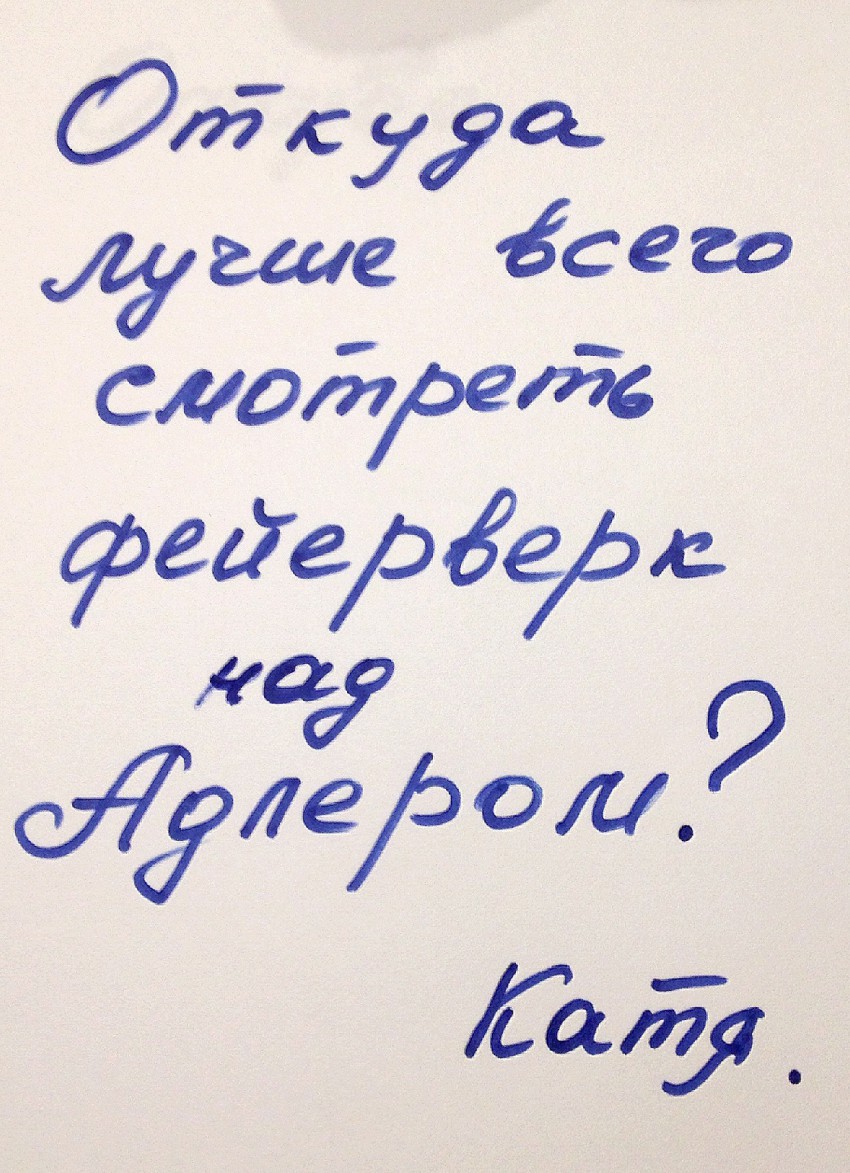 Откуда
лучше всего
смотреть
фейерверк
над
Адлером?
Катя.